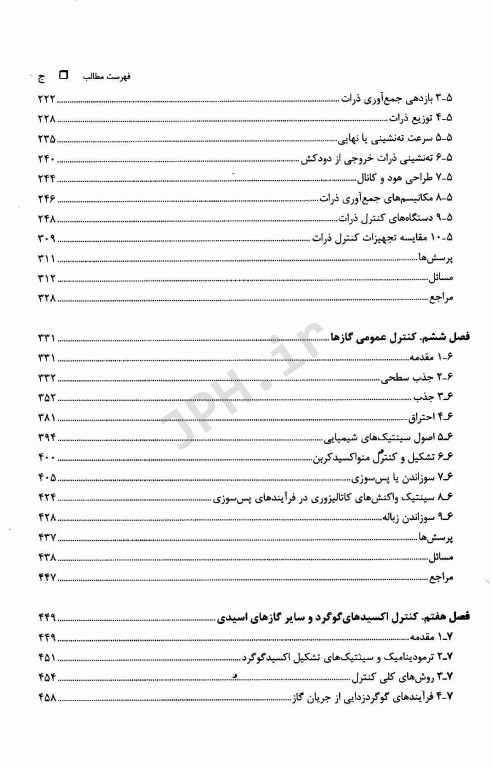 فهرست مطالب ❒ ج
۵ـ۳ بازدهی جمع‌آوری ذرات ۲۲۲
۵ـ۴ توزیع ذرات ۲۲۸
۵ـ۵ سرعت ته‌نشینی یا نهایی ۲۳۵
۵ـ۶ ته‌نشینی ذرات خروجی از دودکش ۲۴۰
۵ـ۷ طراحی هود و کانال ۲۴۴
۵ـ۸ مکانیسم‌های جمع‌آوری ذرات ۲۴۶
۵ـ۹ دستگاه‌های کنترل ذرات ۲۴۸
۵ـ۱۰ مقایسه تجهیزات کنترل ذرات ۳۰۹
پرسش‌ها ۳۱۱
مسائل ۳۱۲
مراجع ۳۲۸
فصل ششم. کنترل عمومی گازها ۳۳۱
۶ـ۱ مقدمه ۳۳۱
۶ـ۲ جذب سطحی ۳۳۲
۶ـ۳ جذب ۳۵۲
۶ـ۴ احتراق ۳۸۱
۶ـ۵ اصول سینتیک‌های شیمیایی ۳۹۴
۶ـ۶ تشکیل و کنترل منواکسیدکربن ۴۰۰
۶ـ۷ سوزاندن یا پس‌سوزی ۴۰۵
۶ـ۸ سینتیک واکنش‌های کاتالیزوری در فرآیندهای پس‌سوزی ۴۲۴
۶ـ۹ سوزاندن زباله ۴۲۸
پرسش‌ها ۴۳۷
مسائل ۴۳۸
مراجع ۴۴۷
فصل هفتم. کنترل اکسیدهای گوگرد و سایر گازهای اسیدی ۴۴۹
۷ـ۱ مقدمه ۴۴۹
۷ـ۲ ترمودینامیک و سینتیک‌های تشکیل اکسیدگوگرد ۴۵۱
۷ـ۳ روش‌های کلی کنترل ۴۵۴
۷ـ۴ فرآیندهای گوگردزدایی از جریان گاز ۴۵۸
JPH.ir